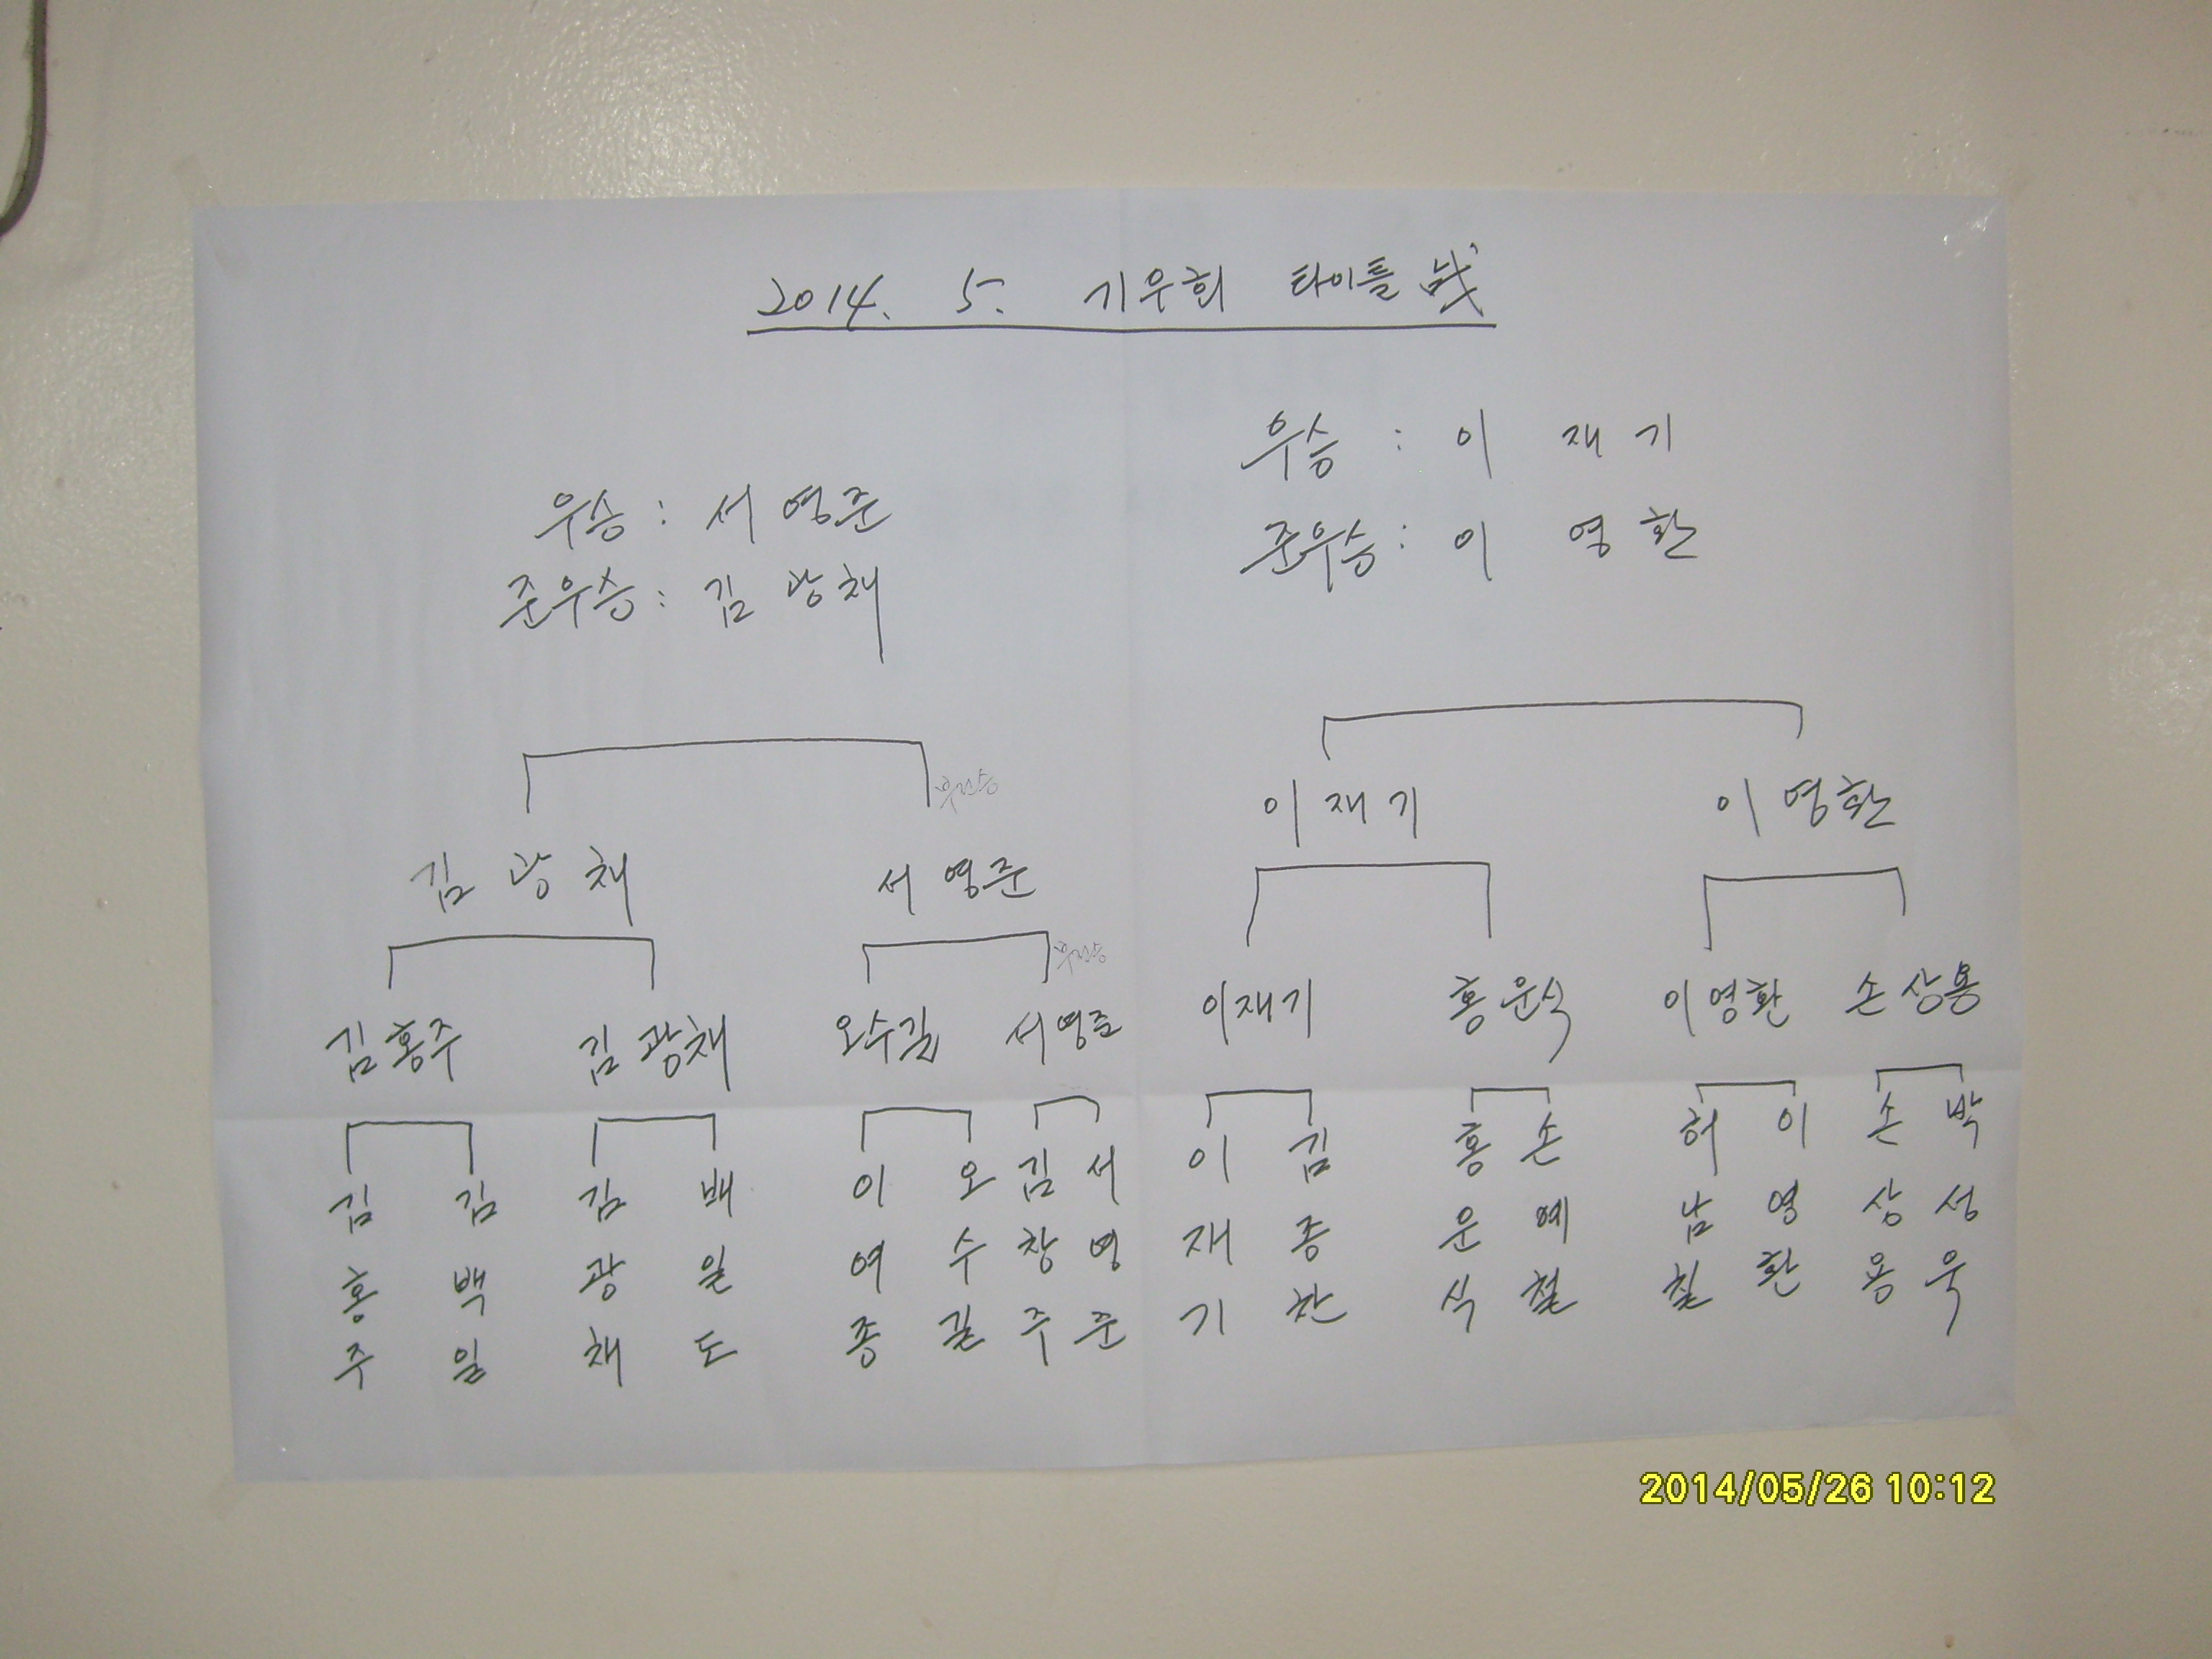 2014. 5. 기우회 타이틀戰
우승 : 서영준
준우승 : 김광채
우승 : 이재기
준우승 : 이영환
김광채 서영준
김홍주 김광채 오수길 서영준
김홍주 김백일 김광채 배일도 이여종 오수길 김창주 서영준
이재기 이영환
이재기 홍운식 이영환 손상용
이재기 김종찬 홍운식 손예철 허남칠 이영환 손상용 박성욱
2014/05/26 10:12